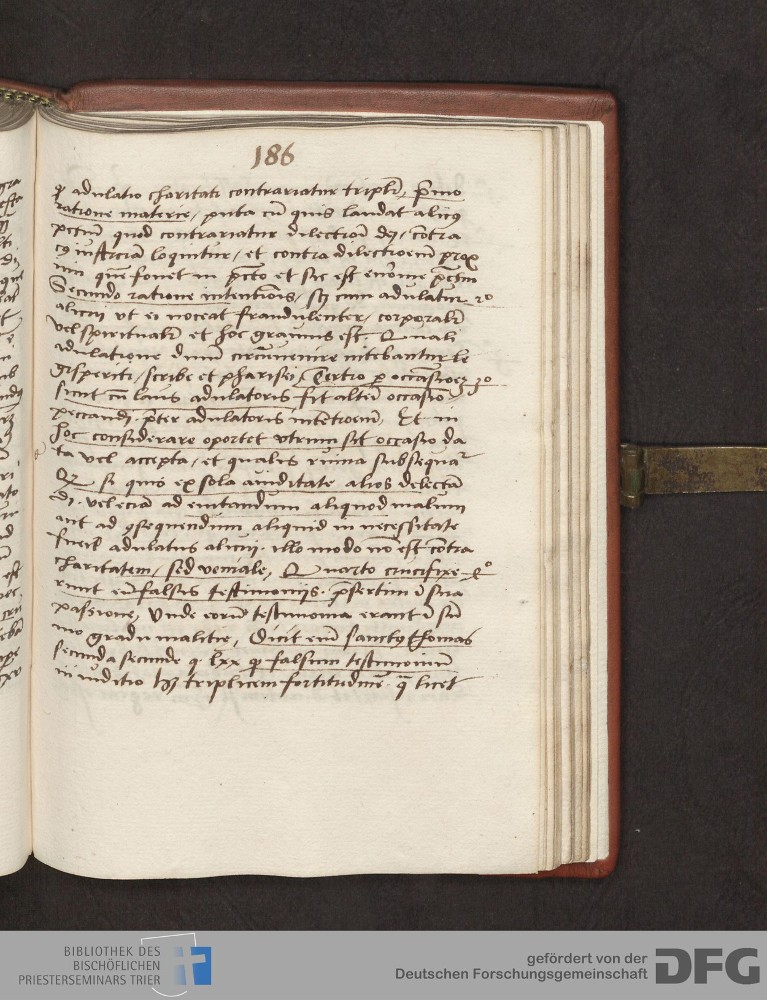 186
q adulatio charitati contrariatur triplr, Primo
ratione materie, puta cū quis laudat alicuj
pctum quod contrariatur dilectioi dei, contra
cuj iusticiam loquitur, et contra dilectioem prox
imi quē fouet in pcto et sic est enorme pctm
Secundo ratione intentiois, sz cum adulatur 2o
alicui vt ei noceat fraudulenter, corporalr
vel spiritualr et hoc grauius est. Quali
adulatione dnm circūuenire nitebantur le
gisperiti, scribe et pharisei, Tertio p occasioez 3o
sicut cū laus adulatoris fit alteri occasio
peccandi. pter adulatoris intētioem, Et in
hoc considerare oportet vtrum sit occasio da
ta vel accepta, et qualis ruina subsequatr
si quis ex sola auiditate alios delectā
di. vel eciam ad euitandum aliquod malum
aut ad 9sequendum aliquid in necessitate
fuerit adulatus alicui. illo modo nō est cōtra
charitatem, sed veniale, Quarto crucifixe 4o
runt eū falsis testimonijs. psertim ī sua
passione, Vnde eorū testimonia erant ī sū
mo gradu malitie, Dicit em sanctus thomas
secunda secunde q. lxx q falsum testimoniū
in iuditio hz triplicem fortitudinē. q licet
BIBLIOTHEK DES
BISCHÖFLICHEN
PRIESTERSEMINARS TRIER
gefördert von der
Deutschen Forschungsgemeinschaft
DFG